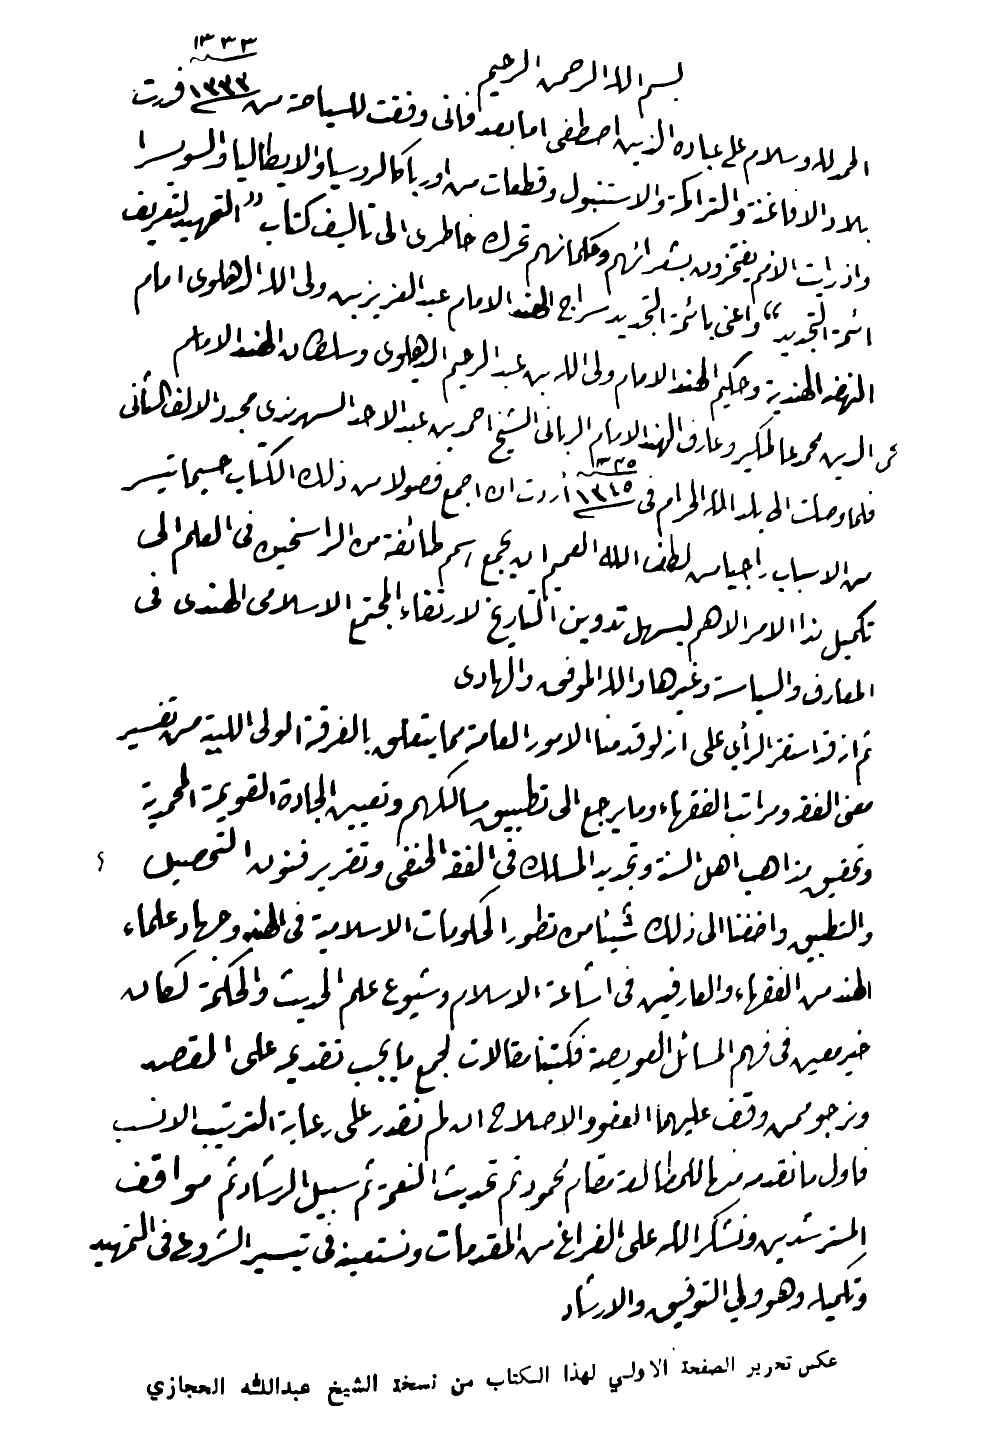 ١٣٣٣
بسم الله الرحمن الرحيم
الحمد لله وسلام على عباده الذين اصطفى اما بعد فانى وفقت للسياحة من ١٣٣٣ فدرت
بلاد الافاغنة والتراكمة والاستنبول وقطعات من اوربا كالروسيا والايطاليا والسويسرا
واذ رايت الامم يفتخرون بشعرائهم وحكمائهم تحرك خاطرى الى تاليف كتاب "التمهيد لتعريف
ائمة التجديد" واعنى بائمة التجديد سراج الهند الامام عبد العزيز بن ولى الله الدهلوى امام
النهضة الهندية وحكيم الهند الامام ولى الله بن عبد الرحيم الدهلوى وسلطان الهند الامام
محى الدين محمد عالمكير وعارف الهند الامام الربانى الشيخ احمد بن عبد الاحد السهرندى مجدد الالف الثانى
١٣٤٥
فلما وصلت الى بلد الله الحرام فى ١٣٤٥ أردت ان اجمع فصولا من ذلك الكتاب حسبما تيسر
من الاسباب راجيا من لطف الله العميم ان يجمع اسم طائفة من الراسخين فى العلم الى
تكميل هذا الامر الاهم ليسهل تدوين التاريخ لارتقاء المجتمع الاسلامى الهندى فى
المعارف والسياسة وغيرها والله الموفق والهادى
ثم انه قد استقر الرأي على انه لو قدمنا الامور العامة مما يتعلق بالفرقة الولى اللهية من تفسير
معنى الفقه ومراتب الفقهاء وما يرجع الى تطبيق مسالكهم وتعيين الجادة القويمة المحمدية
وتحقيق مذاهب اهل السنة وتجديد المسلك فى الفقه الحنفى وتقرير فنون التحصيل
والتطبيق واضفنا الى ذلك شيئا من تطور الحكومات الاسلامية فى الهند وجهاد علماء
الهند من الفقهاء والعارفين فى اشاعة الاسلام وشيوع علم الحديث والحكمة لكان
خير معين فى فهم المسائل العويصة فكتبنا مقالات لجمع ما يجب تقديمه على المقصد
ونرجو ممن وقف عليهما العفو والاصلاح ان لم نقدر على رعاية الترتيب الانسب
فاول ما نقدمه منها للمطالعة مقام محمود ثم تحديث النعمة ثم سبيل الرشاد ثم مواقف
المسترشدين ونشكر الله على الفراغ من المقدمات ونستعينه فى تيسير الشروع فى التمهيد
وتكميله وهو ولي التوفيق والارشاد
عكس تحرير الصفحة الاولى لهذا الكتاب من نسخة الشيخ عبدالله الحجازي